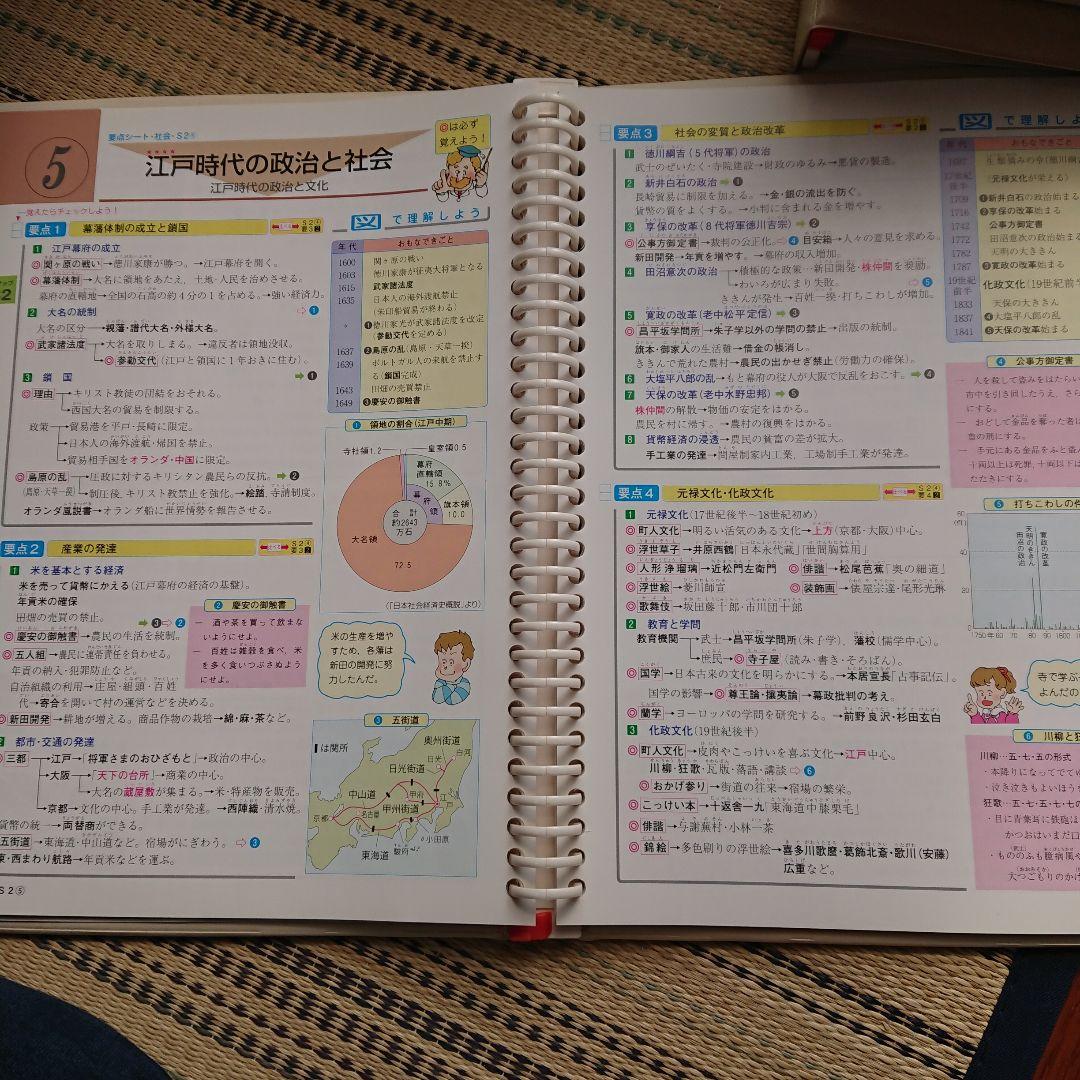 要点シート・社会・S2⑤
5
江戸時代の政治と社会
江戸時代の政治と文化
◎は必ず
覚えよう！
覚えたらチェックしよう！
要点1 幕藩体制の成立と鎖国
1 江戸幕府の成立
◎関ヶ原の戦い→徳川家康が勝つ。→江戸幕府を開く。
◎幕藩体制→大名に領地をあたえ，土地・人民を治めさせる。
幕府の直轄地→全国の石高の約4分の1を占める。→強い経済力。
2 大名の統制 ⇨①
大名の区分→親藩・譜代大名・外様大名。
◎武家諸法度→大名を取りしまる。→違反者は領地没収。
→◎参勤交代(江戸と領国に1年おきに住む)。
3 鎖国 ➡❶
◎理由→キリスト教徒の団結をおそれる。
→西国大名の貿易を制限する。
政策→貿易港を平戸・長崎に限定。
→日本人の海外渡航・帰国を禁止。
→貿易相手国をオランダ・中国に限定。
◎島原の乱→圧政に対するキリシタン農民らの反抗。➡❷
(島原・天草一揆)→制圧後，キリスト教禁止を強化。→絵踏，寺請制度。
オランダ風説書→オランダ船に世界情勢を報告させる。
要点2 産業の発達
1 米を基本とする経済
米を売って貨幣にかえる(江戸幕府の経済の基盤)。
年貢米の確保
田畑の売買の禁止。 ➡❸⇨②
◎慶安の御触書→農民の生活を統制。
◎五人組→農民に連帯責任を負わせる。
年貢の納入・犯罪防止など。
自治組織の利用→庄屋・組頭・百姓
代→寄合を開いて村の運営などを決める。
◎新田開発→耕地が増える。商品作物の栽培→綿・麻・茶など。
都市・交通の発達
◎三都→江戸→「将軍さまのおひざもと」→政治の中心。
→大阪→「天下の台所」→商業の中心。
→大名の蔵屋敷が集まる。→米・特産物を販売。
→京都→文化の中心。手工業が発達。→西陣織・清水焼。
貨幣の統一→両替商ができる。
五街道→東海道・中山道など。宿場がにぎわう。⇨③
東・西まわり航路→年貢米などを運ぶ。
S2⑤
図で理解しよう
年代 おもなできごと
1600 関ヶ原の戦い
1603 徳川家康が征夷大将軍となる
1615 武家諸法度
1635 日本人の海外渡航禁止
(朱印船貿易が終わる)
〃 ❶徳川家光が武家諸法度を改定
(参勤交代を定める)
1637 ❷島原の乱(島原・天草一揆)
1639 ポルトガル人の来航を禁止す
る(鎖国完成)
1643 田畑の売買禁止
1649 ❸慶安の御触書
① 領地の割合(江戸中期)
寺社領1.2 皇室領0.5
幕府直轄領15.8%
幕府領
旗本領10.0
合計
約2643
万石
大名領
72.5
(『日本社会経済史概説』より)
② 慶安の御触書
一 酒や茶を買って飲まな
いようにせよ。
一 百姓は雑穀を食べ，米
を多く食いつぶさぬよう
にせよ。
米の生産を増や
すため，各藩は
新田の開発に努
力したんだ。
③ 五街道
は関所
奥州街道
白河
日光街道
日光
中山道
甲府
甲州街道
江戸
京都
名古屋
小田原
駿府
東海道
要点3 社会の変質と政治改革
1 徳川綱吉(5代将軍)の政治
武士のぜいたく・寺院建設→財政のゆるみ→悪貨の製造。
2 新井白石の政治➡❶
長崎貿易に制限を加える。→金・銀の流出を防ぐ。
貨幣の質をよくする。→小判に含まれる金を増やす。
3 享保の改革(8代将軍徳川吉宗)➡❷
◎公事方御定書→裁判の公正化。⇨④ 目安箱→人々の意見を求める。
新田開発→年貢を増やす。→幕府の収入増加。
4 田沼意次の政治→積極的な政策…新田開発・株仲間を奨励。
→わいろが広まり失敗。 ⇨⑤
ききんが発生→百姓一揆・打ちこわしが増加。
5 寛政の改革(老中松平定信)➡❸
◎昌平坂学問所→朱子学以外の学問の禁止→出版の統制。
旗本・御家人の生活難→借金の帳消し。
ききんで荒れた農村→農民の出かせぎ禁止(労働力の確保)。
6 大塩平八郎の乱→もと幕府の役人が大阪で反乱をおこす。➡❹
7 天保の改革(老中水野忠邦)➡❺
株仲間の解散→物価の安定をはかる。
農民を村に帰す。→農村の復興をはかる。
8 貨幣経済の浸透→農民の貧富の差が拡大。
手工業の発達→問屋制家内工業，工場制手工業が発達。
要点4 元禄文化・化政文化
1 元禄文化(17世紀後半～18世紀初め)
◎町人文化→明るい活気のある文化→上方(京都・大阪)中心。
◎浮世草子→井原西鶴「日本永代蔵」「世間胸算用」
◎人形浄瑠璃→近松門左衛門 ◎俳諧→松尾芭蕉「奥の細道」
◎浮世絵→菱川師宣 ◎装飾画→俵屋宗達・尾形光琳
◎歌舞伎→坂田藤十郎・市川団十郎
2 教育と学問
教育機関→武士→昌平坂学問所(朱子学)，藩校(儒学中心)。
→庶民→◎寺子屋(読み・書き・そろばん)。
◎国学→日本古来の文化を明らかにする。→本居宣長「古事記伝」。
国学の影響→◎尊王論・攘夷論→幕政批判の考え。
◎蘭学→ヨーロッパの学問を研究する。→前野良沢・杉田玄白
3 化政文化(19世紀後半)
◎町人文化→皮肉やこっけいを喜ぶ文化→江戸中心。
川柳・狂歌・瓦版・落語・講談⇨⑥
◎おかげ参り→街道の往来→宿場の繁栄。
◎こっけい本→十返舎一九「東海道中膝栗毛」
◎俳諧→与謝蕪村・小林一茶
◎錦絵→多色刷りの浮世絵→喜多川歌麿・葛飾北斎・歌川(安藤)
広重など。
図で理解しよ
年代 おもなできごと
17世紀後半 (元禄文化が栄える)
1709 ❶新井白石の政治始まる
1716 ❷享保の改革始まる
1742 公事方御定書
1772 田沼意次の政治始ま
1782 天明の大ききん
1787 ❸寛政の改革始まる
19世紀前半 化政文化(19世紀前半
1833 天保の大ききん
1837 ❹大塩平八郎の乱
1841 ❺天保の改革始まる
④ 公事方御定書
一 人を殺して盗みをはたらい
市中を引き回したうえ，さら
にする。
一 おどして金品を奪った者は
首の刑にする。
一 手元にある金品をぬす
十両以上は死罪，十両以下は
たたきにする。
⑤ 打ちこわしの件
60
(件)
40
20
0
田沼の政治
天明のききん
寛政の改革
1750年 60 70 80 90
寺で学ぶ
よんだの
⑥ 川柳と狂
川柳…五・七・五の形式
・本降りになってでてゆ
・泣き泣きもよいほうを
狂歌…五・七・五・七・七の
・目に青葉耳に鉄砲ほ
かつおはいまだ口
・もののふも臆病風や
大つごもりのかけ